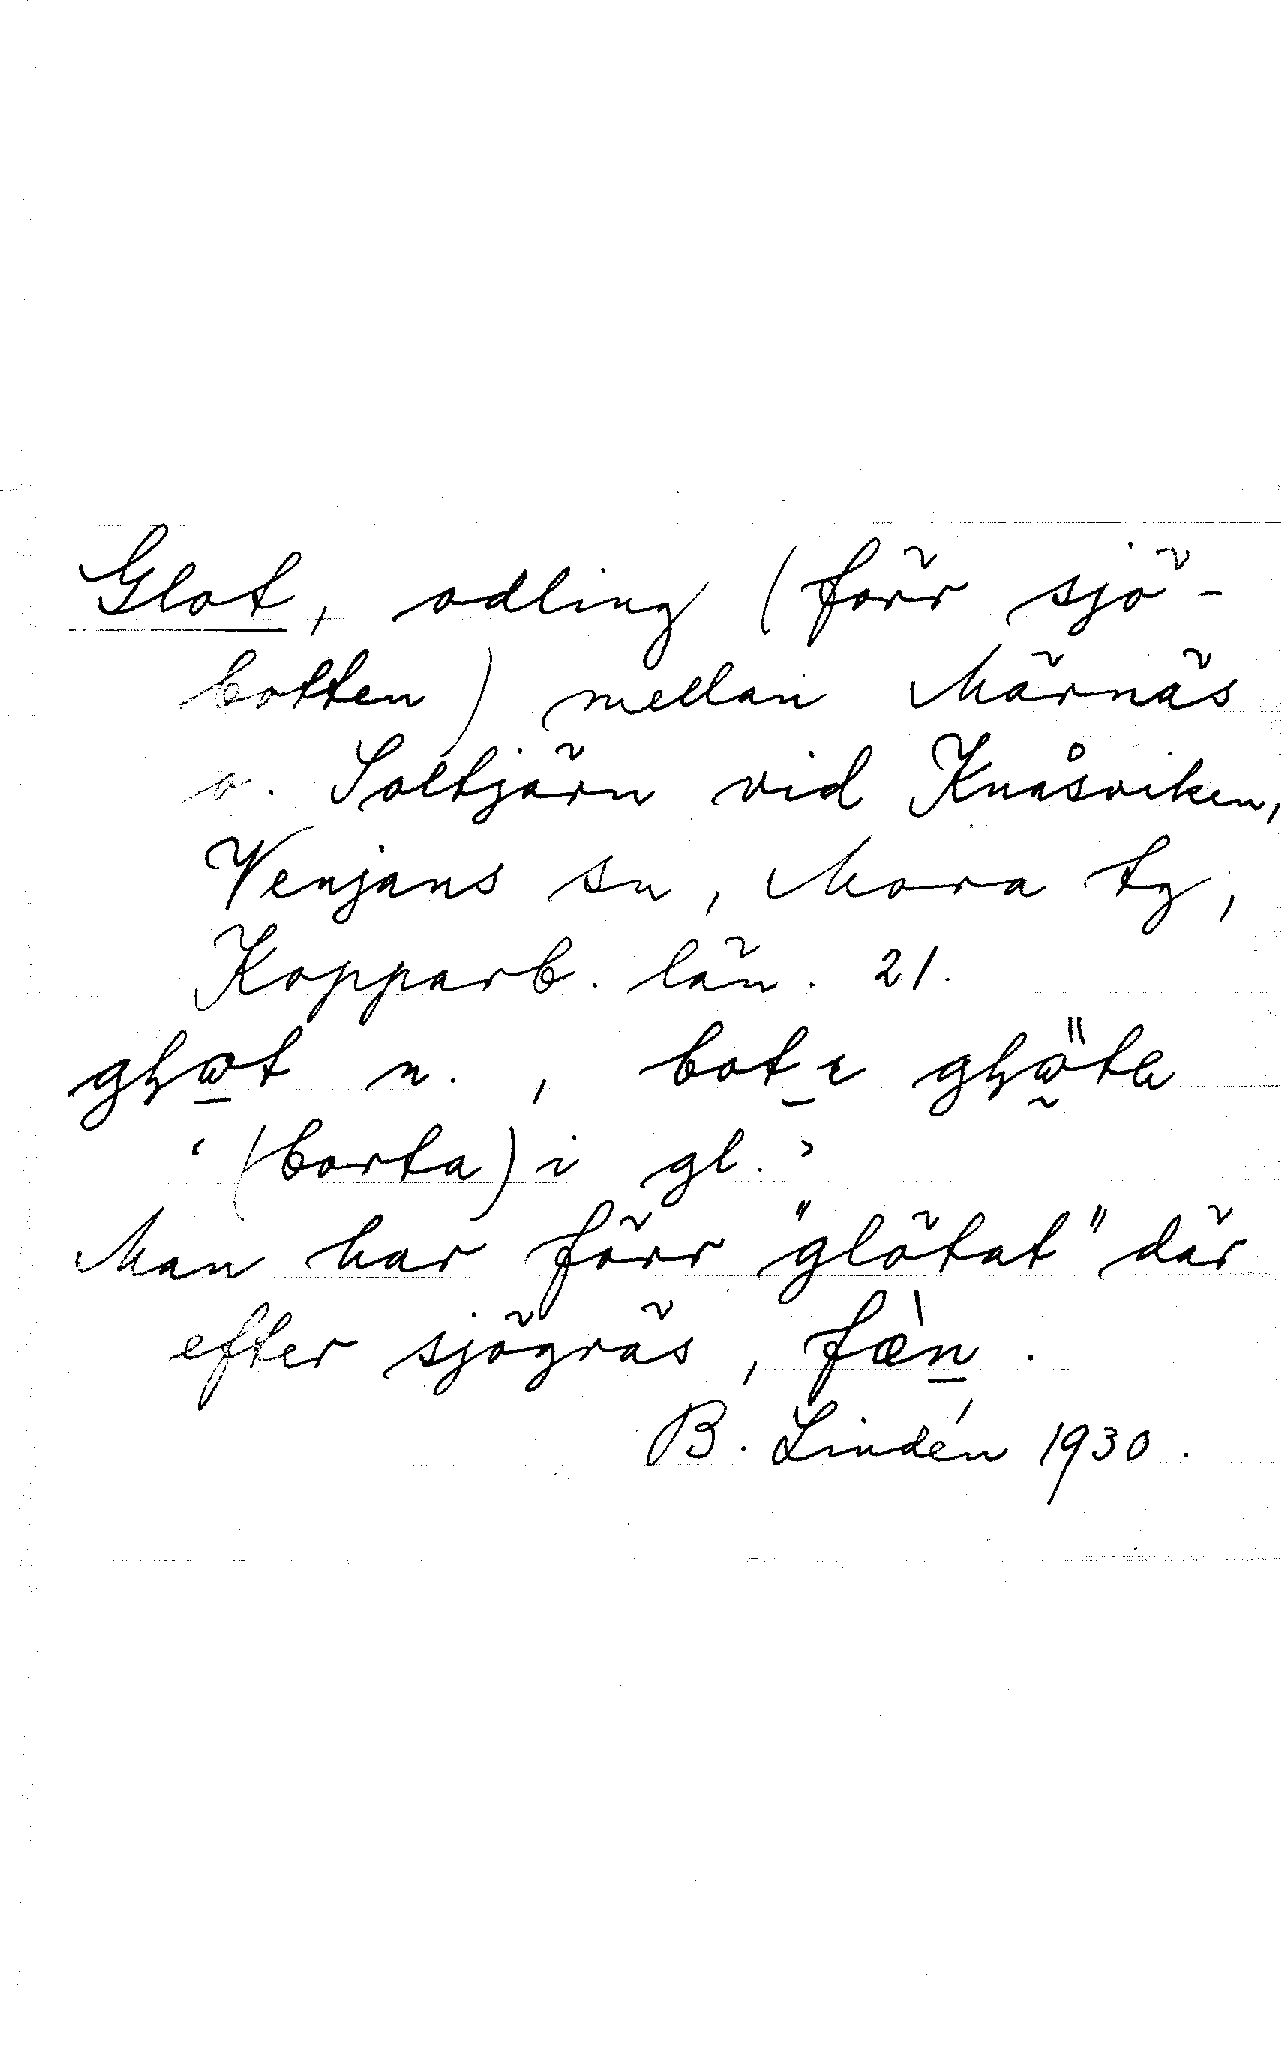 Glot, odling (förr sjö-
botten) mellan Märnäs
o. Soltjärn vid Knåsviken,
Venjans sn, Mora tg,
Kopparb. län. 21.
n.,
‘(borta) i gl.’
Man har förr "glötat" där
efter sjögräs, fæ̀n.
B. Lindén 1930.